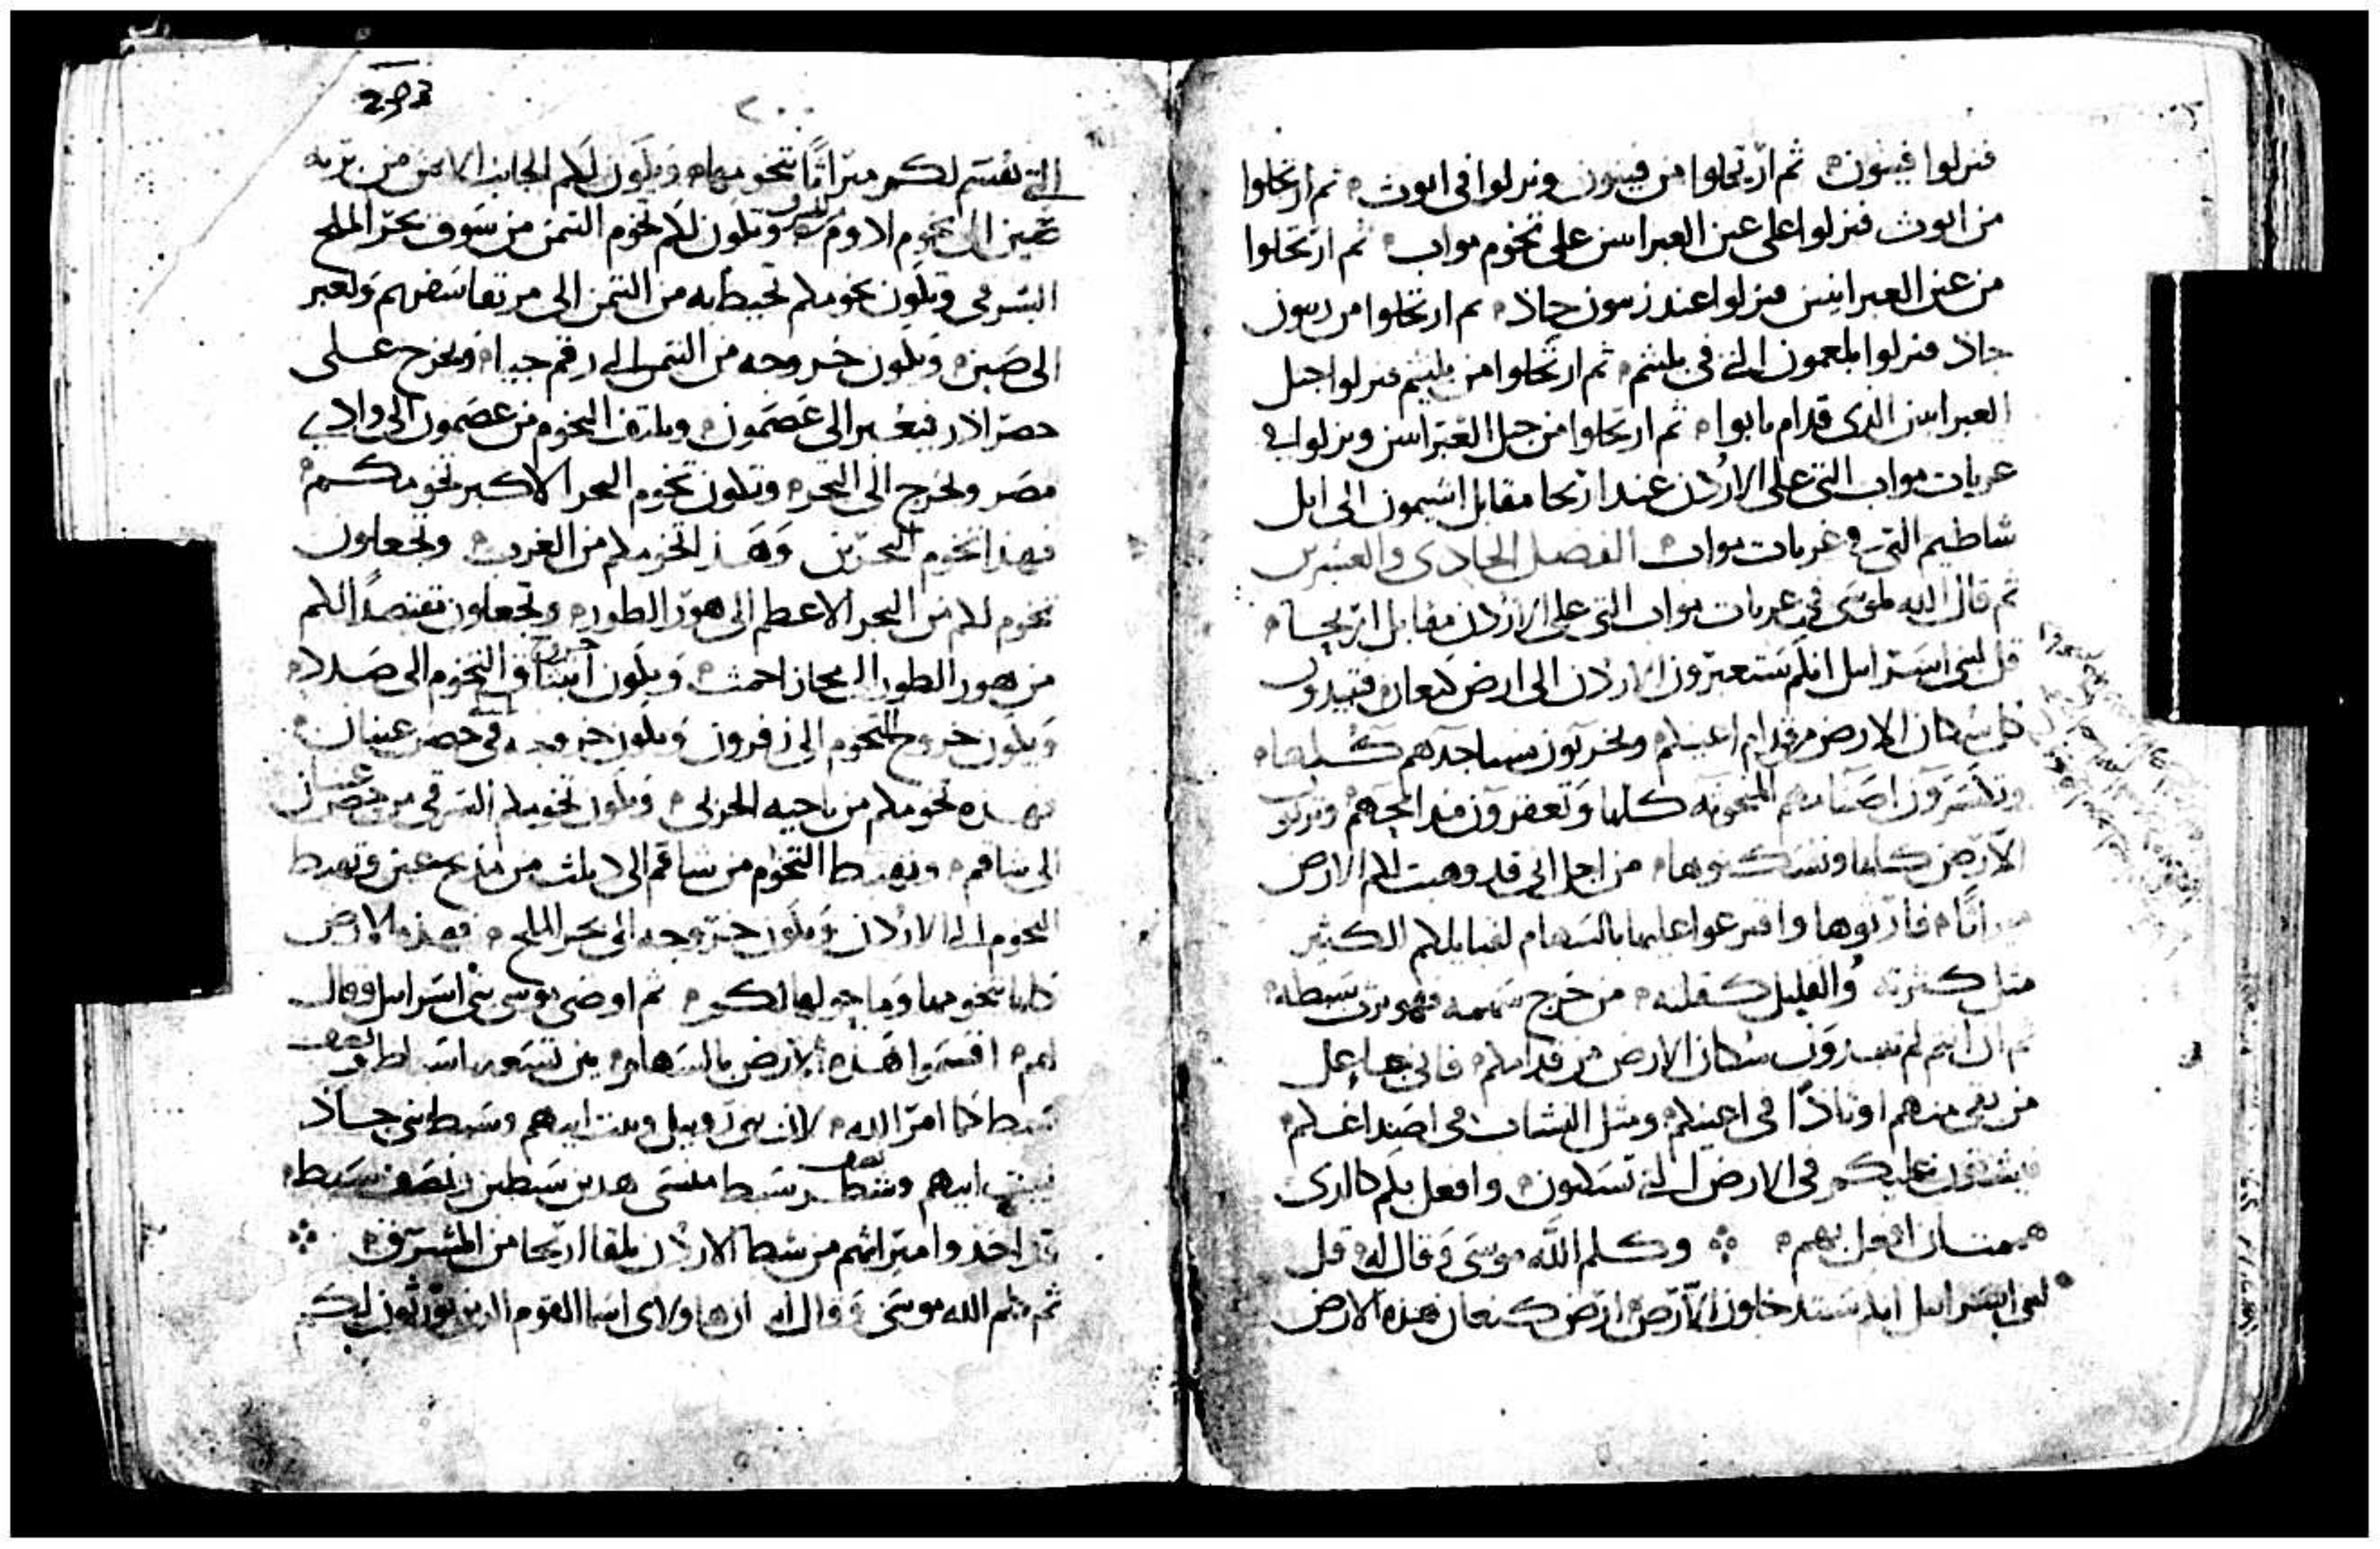 فنزلوا فينون ثم ارتحلوا من فينون ونزلوا في ابوث ثم ارتحلوا
من ابوث فنزلوا على عين العبرانيين على تخوم مواب ثم ارتحلوا
من عين العبرانيين فنزلوا عند زيبون جاذ ثم ارتحلوا من ريبون
جاذ فنزلوا بلعمون التي في بلثيم ثم ارتحلوا من بلثيم فنزلوا جبل
العبرانيين الذي قدام نابوا ثم ارتحلوا من جبل العبرانيين ونزلوا في
عربات مواب التي على الاردن عند اريحا مقابل اشيمون الى ابل
شاطيم التي في عربات مواب الفصل الحادي والعشرين
ثم قال الله لموسى في عربات مواب التي على الاردن مقابل اريحا
قل لبني اسرايل انكم ستعبرون الاردن الى ارض كنعان فتبيدون
كل سكان الارض من قدام اعينكم وتخربون مساجدهم كلها
وتكسرون اصنامهم المنحوته كلها وتعفرون مذابحهم وترثوا
الارض كلها وتسكنوها من اجل اني قد وهبت لكم الارض
ميراثا فارثوها واقترعوا عليها بالسهام لقبايلكم الكثير
مثل كثرته والقليل كقلته من خرج سهمه فهو يرث بسبطه
ثم ان انتم لم تبيدون سكان الارض من قدامكم فاني جاعل
من بقي منهم اوتادا في اعينكم ومثل النشاب في اصداغكم
فيشقون عليكم في الارض التي تسكنون وافعل بكم كالذي
هممت ان افعل بهم وكلم الله موسى وقال له قل
لبني اسرايل انكم ستدخلون الارض ارض كنعان هذه الارض
203
٢٠٠
التي تقسم لكم ميراثا بتخومها ويكون لكم الجانب الايمن من بريه
صين الى تخوم ادوم ويكون لكم تخوم التيمن من سوف بحر الملح
الشرقي ويكون تخومكم تحيط به من التيمن الى مرتقا سفهم وتعبر
الى صين ويكون خروجه من التيمن الى رقم جيا وتخرج على
حصر اذر فيعبر الى عصمون ويلتف التخوم من عصمون الى وادي
مصر وتخرج الى البحر وتكون تخوم البحر الاكبر تخومكم
فهذا تخوم البحرين وهذا تخومكم من الغرب وتجعلون
تخوم لكم من البحر الاعظم الى هور الطور وتجعلون تقتصدا لكم
من هور الطور الى مجاز احمث ويكون التخوم الى صلاد
ويكون خروج التخوم الى زفرون ويكون خروجه في حصر عينان
فهذه تخومكم من ناحيه الحربي ويكون تخومكم الشرقي من حصر عينان
الى شافم ويهبط التخوم من شافم الى دبلث من مذبح عين وتهبط
التخوم الى الاردن ويكون خروجه الى بحر الملح فهذه الارض
كلها بتخومها وما حولها لكم ثم اوصى موسى بني اسرايل وقال
لهم اقسموا هذه الارض بالسهام بين تسعه اسباط ونصف
سبط كما امر الله لان بني روبيل وبيت ابيهم وسبط بني جاذ
وبيت ابيهم ونصف سبط منسى هذين سبطين ونصف سبط
قد اخذوا ميراثهم من شط الاردن تلقا اريحا من المشرق
ثم كلم الله موسى وقال له ان هاولاي اسما القوم الذين يورثون لكم